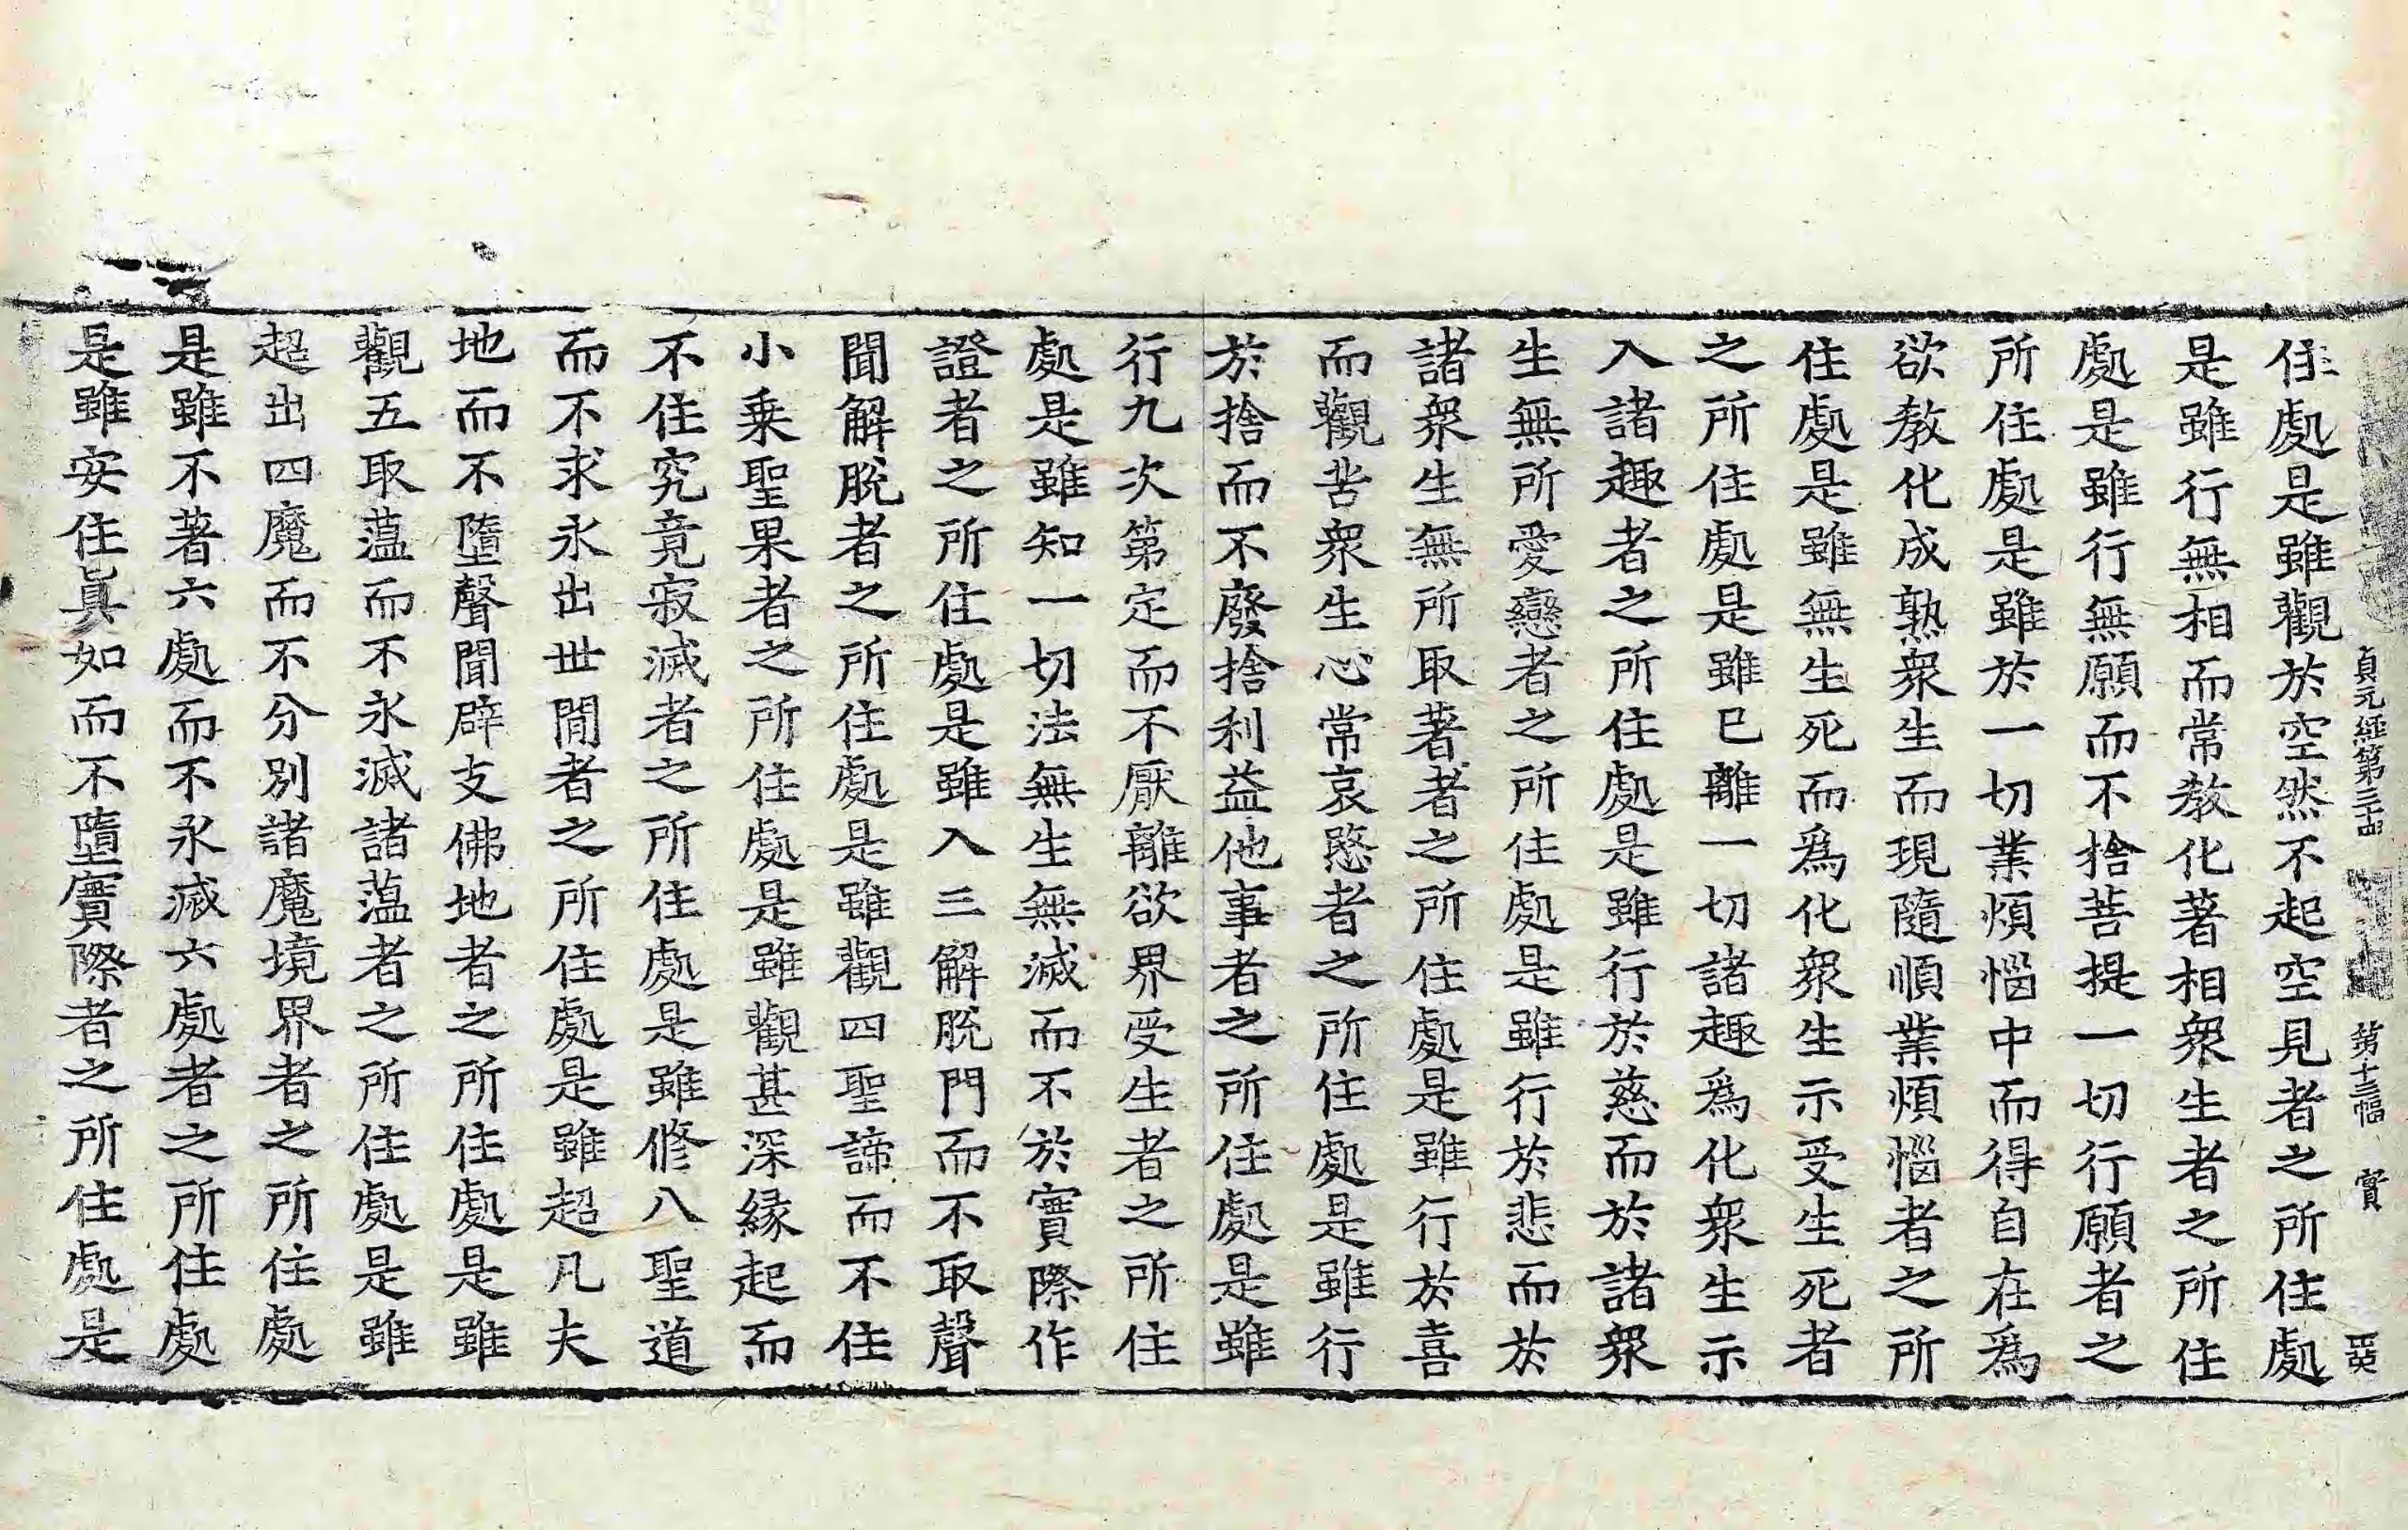 貞元經第三十四 第十三幅 賞 英
住處是雖觀於空然不起空見者之所住處
是雖行無相而常教化著相衆生者之所住
處是雖行無願而不捨菩提一切行願者之
所住處是雖於一切業煩惱中而得自在爲
欲教化成熟衆生而現隨順業煩惱者之所
住處是雖無生死而爲化衆生示受生死者
之所住處是雖已離一切諸趣爲化衆生示
入諸趣者之所住處是雖行於慈而於諸衆
生無所愛戀者之所住處是雖行於悲而於
諸衆生無所取著者之所住處是雖行於喜
而觀苦衆生心常哀愍者之所住處是雖行
於捨而不廢捨利益他事者之所住處是雖
行九次第定而不厭離欲界受生者之所住
處是雖知一切法無生無滅而不於實際作
證者之所住處是雖入三解脫門而不取聲
聞解脫者之所住處是雖觀四聖諦而不住
小乘聖果者之所住處是雖觀甚深緣起而
不住究竟寂滅者之所住處是雖修八聖道
而不求永出世間者之所住處是雖超凡夫
地而不墮聲聞辟支佛地者之所住處是雖
觀五取蕰而不永滅諸蕰者之所住處是雖
超出四魔而不分別諸魔境界者之所住處
是雖不著六處而不永滅六處者之所住處
是雖安住真如而不墮實際者之所住處是